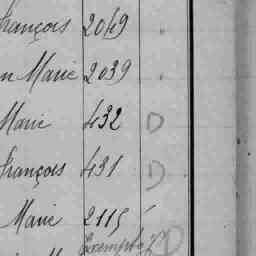 François 2049
Marie 2039
Marie 432 D
François 431 D
Marie 2115
Exempté D